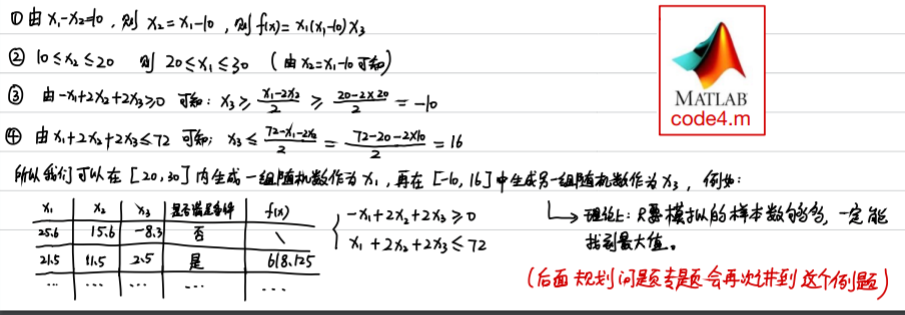 ① 由 x₁-x₂=10，则 x₂=x₁-10，则 f(x)=x₁(x₁-10)x₃
② 10≤x₂≤20 则 20≤x₁≤30 （由 x₂=x₁-10 可知）
③ 由 -x₁+2x₂+2x₃≥0 可知：x₃≥(x₁-2x₂)/2≥(20-2×20)/2=-10
④ 由 x₁+2x₂+2x₃≤72 可知；x₃≤(72-x₁-2x₂)/2=(72-20-2×10)/2=16
所以我们可以在 [20,30] 内生成一组随机数作为 x₁，再在 [-10,16] 中生成另一组随机数作为 x₃，例如：
x₁ x₂ x₃ 是否满足条件 f(x)
25.6 15.6 -8.3 否 \
21.5 11.5 2.5 是 618.125
... ... ... ... ...
{ -x₁+2x₂+2x₃≥0
x₁+2x₂+2x₃≤72
→ 理论上：只要模拟的样本数够多，一定能
找到最大值。
(后面规划问题专题会再次讲到这个例题)
MATLAB
code4.m